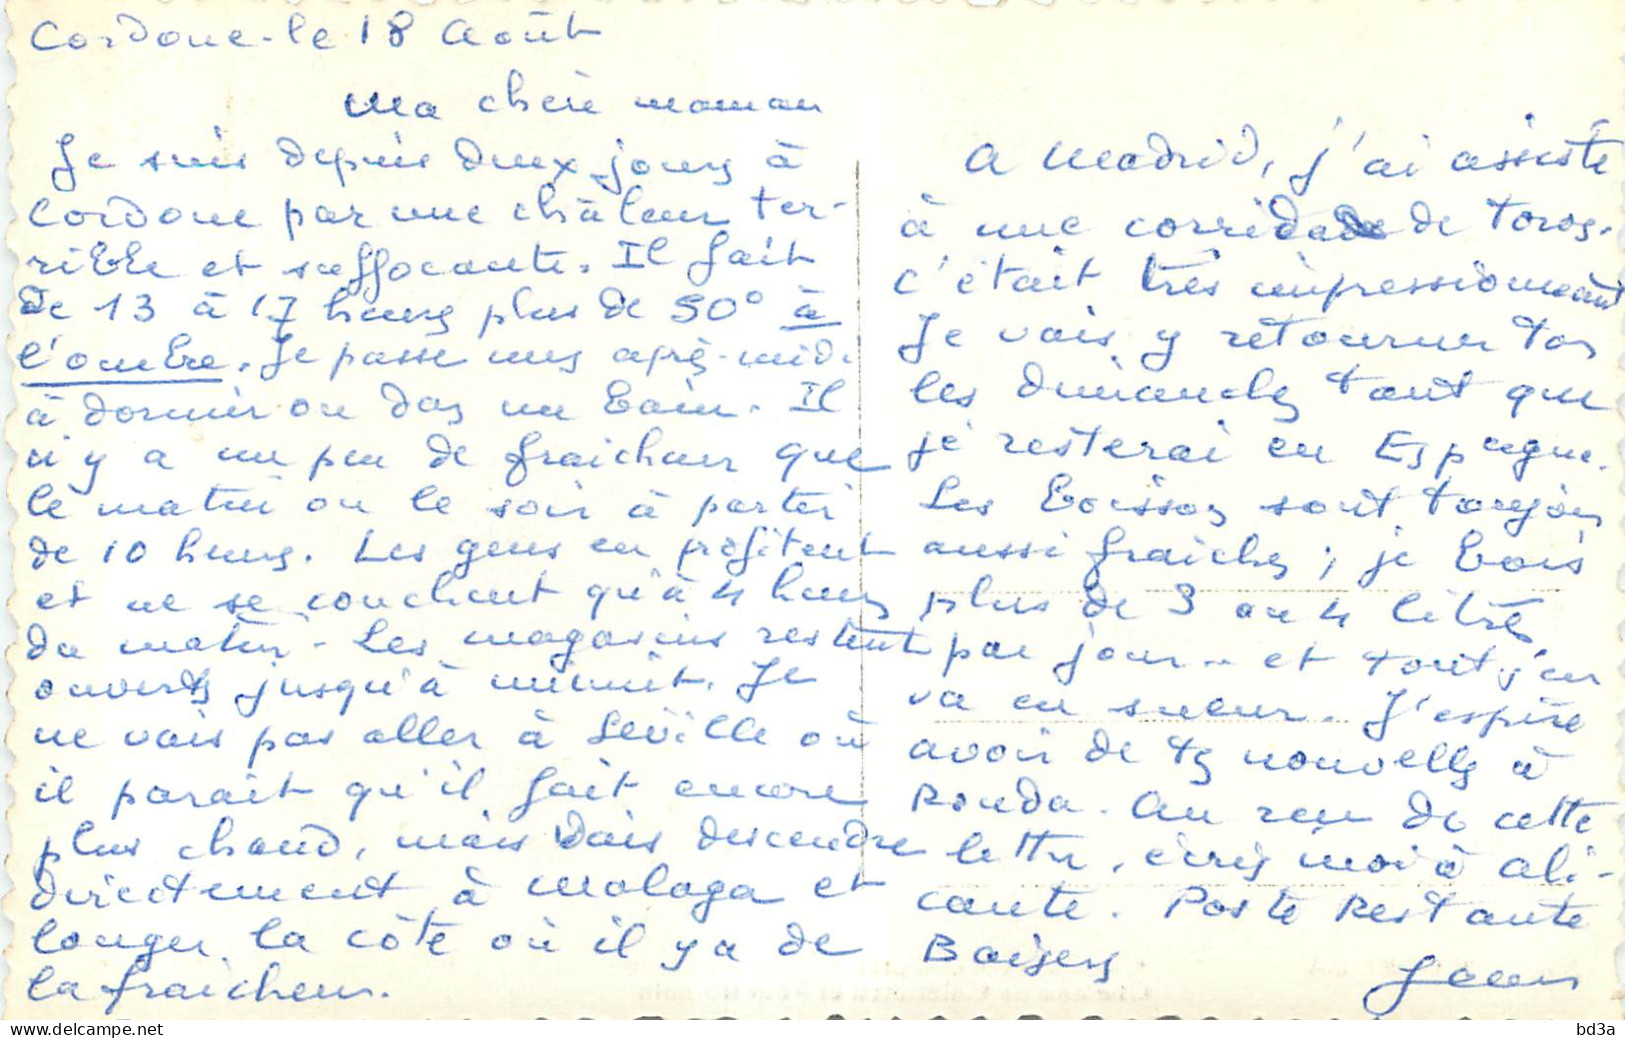 Cordoue - le 18 Août
Ma chère maman
Je suis depuis deux jours à
Cordoue par une châleur ter-
rible et suffocante. Il fait
de 13 à 17 heures plus de 50° à
l'ombre. Je passe mes après-midi
à dormir ou dans un bain. Il
n'y a un peu de fraicheur que
le matin ou le soir à partir
de 10 heures. Les gens en profitent
et ne se couchent qu'à 4 heures
du matin - Les magasins restent
ouverts jusqu'à minuit. Je
ne vais pas aller à Séville où
il parait qu'il fait encore
plus chaud, mais vais descendre
directement à Malaga et
longer la côte où il y a de
la fraicheur.
A Madrid, j'ai assisté
à une corrida de toros.
C'était très impressionnant
Je vais y retourner tous
les dimanches tant que
je resterai en Espagne.
Les boissons sont toujours
aussi fraiches ; je bois
plus de 3 ou 4 litres
par jour - et tout s'en
va en sueur. J'espère
avoir de tes nouvelles à
Ronda. Au reçu de cette
lettre, écris moi à Ali-
cante. Poste Restante
Baisers
Jean
bd3a